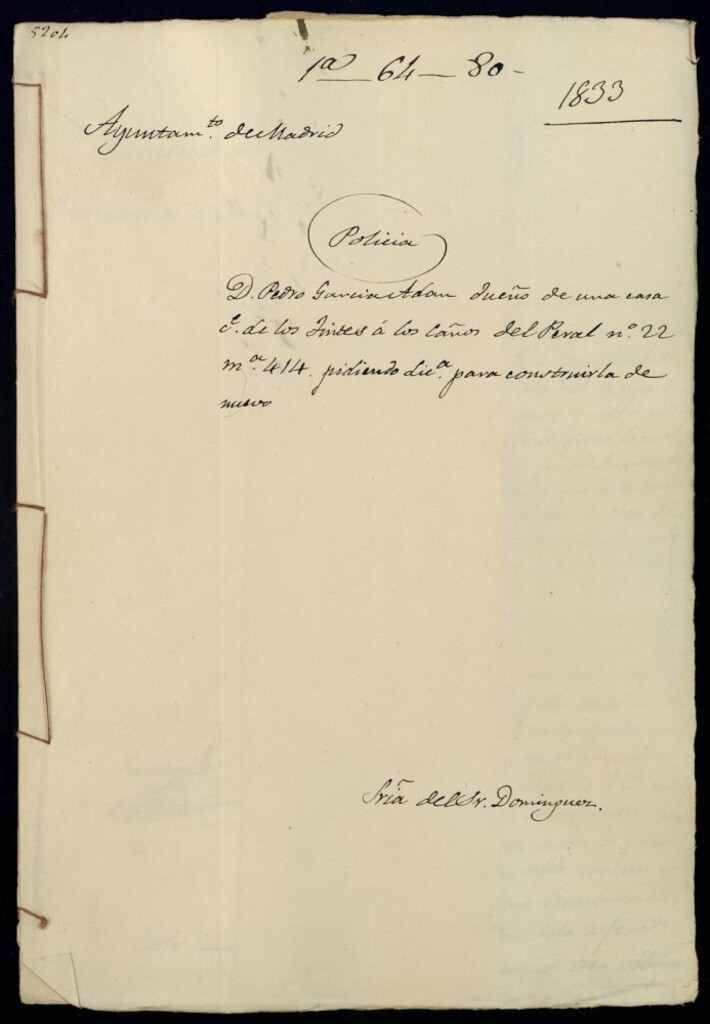 5204
1ª — 64 — 80 -
1833
Ayuntam.to de Madrid
Policia
D. Pedro Garcia Adan dueño de una casa
c.e de los Tintes á los Caños del Peral nº. 22
m.ª 414. pidiendo lic.ª para construirla de
nuevo
Sría del Sr. Dominguez.